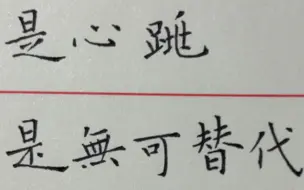 是心跳
是無可替代